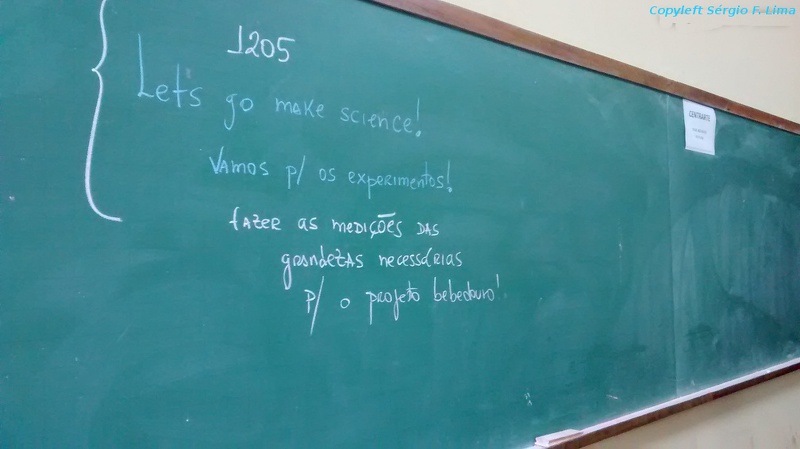 Copyleft Sérgio F. Lima
1205
Let's go make science!
Vamos p/ os experimentos!
fazer as medições das
grandezas necessárias
p/ o projeto bebedouro!
CENTRARTE